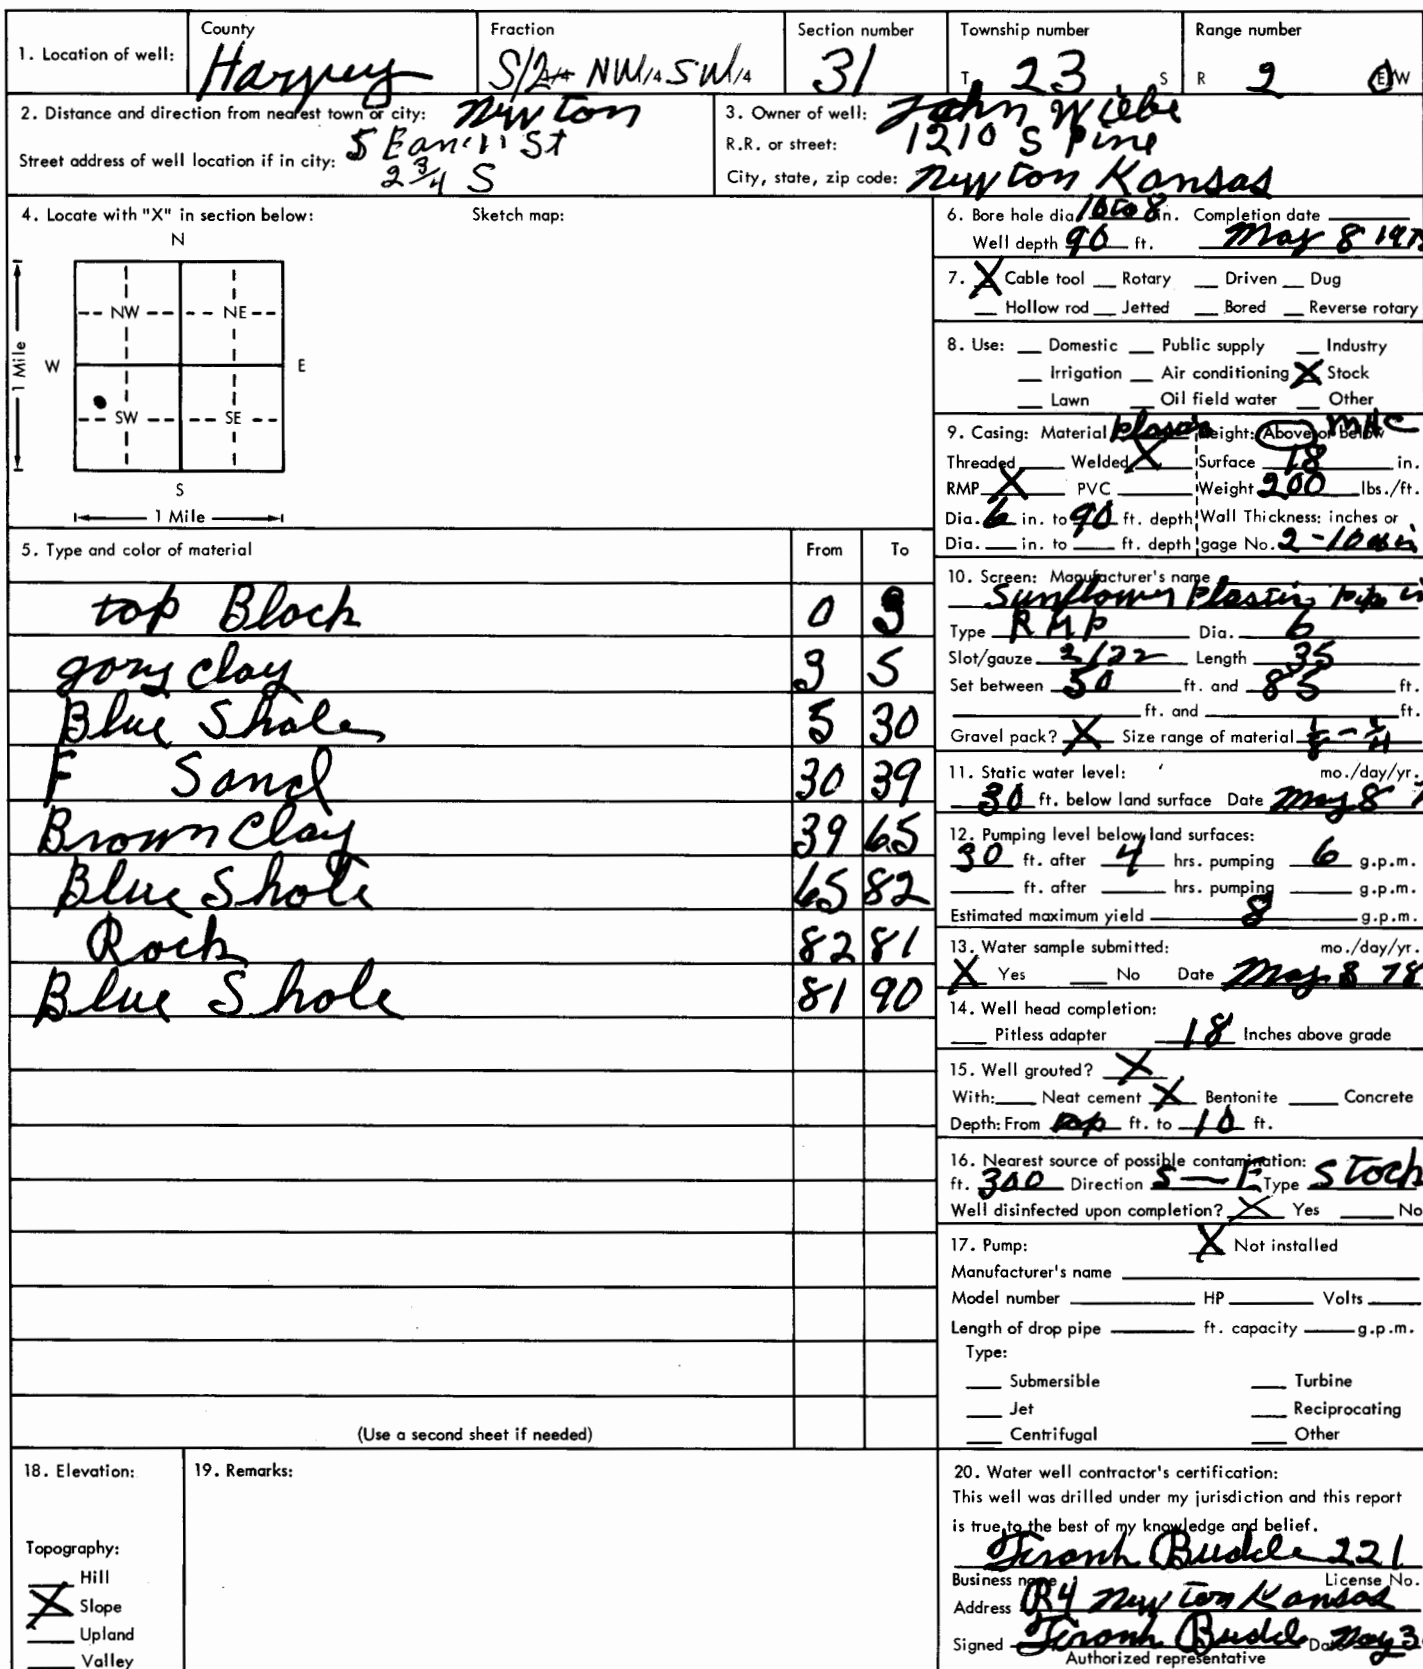 1. Location of well:
County
Harvey
Fraction
S/2 1/4 NW 1/4 SW 1/4
Section number
31
Township number
T. 23 S
Range number
R 2 E/W
2. Distance and direction from nearest town or city: Newton
5 E on 11 St
Street address of well location if in city:
2 3/4 S
3. Owner of well: John Wiebe
R.R. or street: 1210 S Pine
City, state, zip code: Newton Kansas
4. Locate with "X" in section below:
Sketch map:
N
NW NE
W E
1 Mile
SW SE
S
1 Mile
5. Type and color of material From To
top Black 0 3
gray clay 3 5
Blue Shale 5 30
F Sand 30 39
Brown Clay 39 65
Blue Shale 65 82
Rock 82 81
Blue Shale 81 90
(Use a second sheet if needed)
6. Bore hole dia 10 to 8 in. Completion date
Well depth 90 ft. May 8 197
7. X Cable tool Rotary Driven Dug
Hollow rod Jetted Bored Reverse rotary
8. Use: Domestic Public supply Industry
Irrigation Air conditioning X Stock
Lawn Oil field water Other
9. Casing: Material Height: Above or below
Threaded Welded X Surface 18 in.
RMP X PVC Weight 200 lbs./ft.
Dia. 6 in. to 90 ft. depth Wall Thickness: inches or
Dia. in. to ft. depth gage No. 2-10
10. Screen: Manufacturer's name
Sunflower Plastic Pipe in
Type RMP Dia. 6
Slot/gauze Length 35
Set between 50 ft. and 85 ft.
ft. and ft.
Gravel pack? X Size range of material 1/8 - 1/4
11. Static water level: mo./day/yr.
30 ft. below land surface Date May 8 7
12. Pumping level below land surfaces:
30 ft. after 4 hrs. pumping 6 g.p.m.
ft. after hrs. pumping g.p.m.
Estimated maximum yield 8 g.p.m.
13. Water sample submitted: mo./day/yr.
X Yes No Date May 8 78
14. Well head completion:
Pitless adapter 18 Inches above grade
15. Well grouted? X
With: Neat cement X Bentonite Concrete
Depth: From top ft. to 10 ft.
16. Nearest source of possible contamination:
ft. 300 Direction S—E Type Stock
Well disinfected upon completion? X Yes No
17. Pump: X Not installed
Manufacturer's name
Model number HP Volts
Length of drop pipe ft. capacity g.p.m.
Type:
Submersible Turbine
Jet Reciprocating
Centrifugal Other
18. Elevation:
Topography:
Hill
X Slope
Upland
Valley
19. Remarks:
20. Water well contractor's certification:
This well was drilled under my jurisdiction and this report
is true to the best of my knowledge and belief.
Frank Budde 221
Business name License No.
Address R4 Newton Kansas
Signed Frank Budde Date May 3
Authorized representative